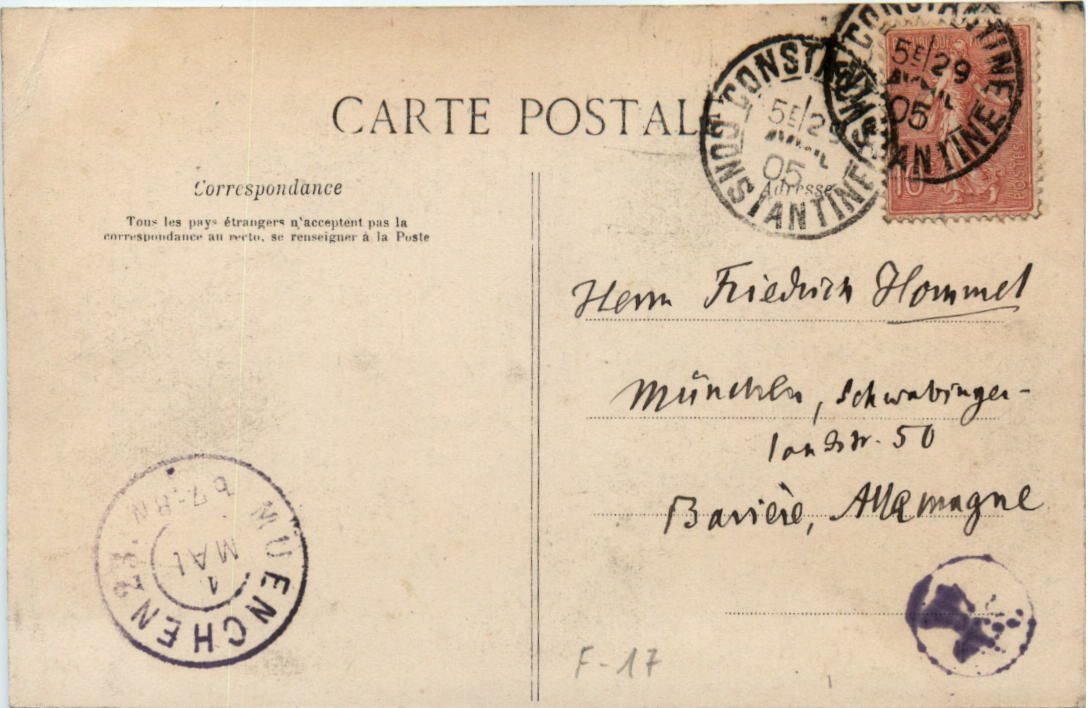 CARTE POSTAL
Correspondance
Tous les pays étrangers n'acceptent pas la
correspondance au recto, se renseigner à la Poste
Adresse
CONSTANTINE CONSTANTINE
5E/29
AVRIL
05
CONSTANTINE CONSTANTINE
5E/29
AVRIL
05
10
POSTES
Herrn Friedrich Hommel
München, Schwabinger-
landstr. 50
Bavière, Allemagne
MUENCHEN 23.
1
MAI
7-8N
F-17